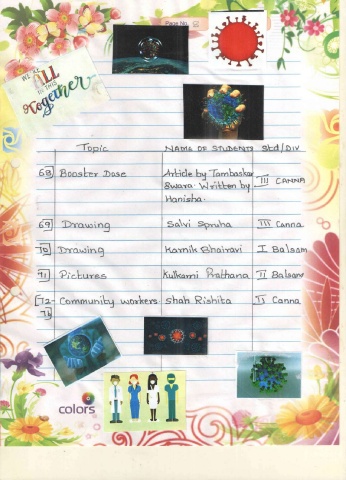 Page No.
WE ARE
ALL
IN THIS
together
Topic NAME OF STUDENTS Std/DIV
68 Booster Dose Article by Tambaskar III CANNA
Swara. Written by
Manisha.
69 Drawing Salvi Spruha III Canna
70 Drawing Karnik Bhairavi I Balsam
71 Pictures Kulkarni Prathana II Balsam
72- Community workers. Shah Rishita II Canna
colors